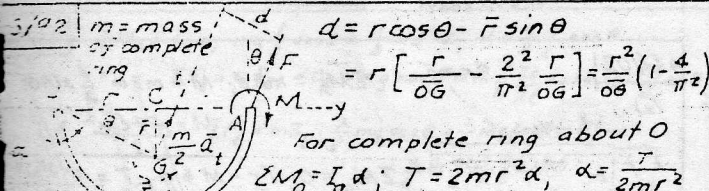 5/92 m = mass of complete ring
d
d = r cos θ - r̄ sin θ
θ F
= r [ r/OG - 2²/π² r/OG ] = r²/OG (1 - 4/π²)
r C M y
θ r̄ m/2 ā_t A
G
For complete ring about O
ΣM_O = I_O α; T = 2mr²α, α = T/2mr²